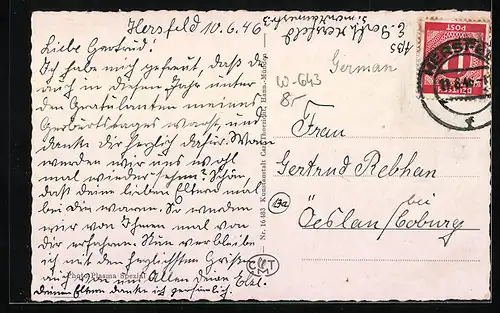 Hersfeld 10.6.46
Liebe Gertrud!
Ich habe mich gefreut, daß Du
auch in diesem Jahre unter
den Gratulanten meines
Geburtstages warst, und
danke Dir herzlich dafür. Wann
werden wir uns wohl
mal wieder sehen? Schön,
daß deine lieben Eltern mal
bei Dir waren. So wurden
wir von Ihnen mal von
Dir erfahren. Nun verbleibe
ich mit den herzlichsten Grüßen
auch von uns Allen Deine
Deinen Eltern danke ich persönlich.
Photo Plasma Spezial
Nr. 16483 Kunstanstalt Carl Thoericht, Hann.-Münden
Abs
Hersfeld
German
W-643
8-
DEUTSCHE POST
HERSFELD
Frau
Gertrud Rebhan
(13a)
bei
Oeslau/Coburg